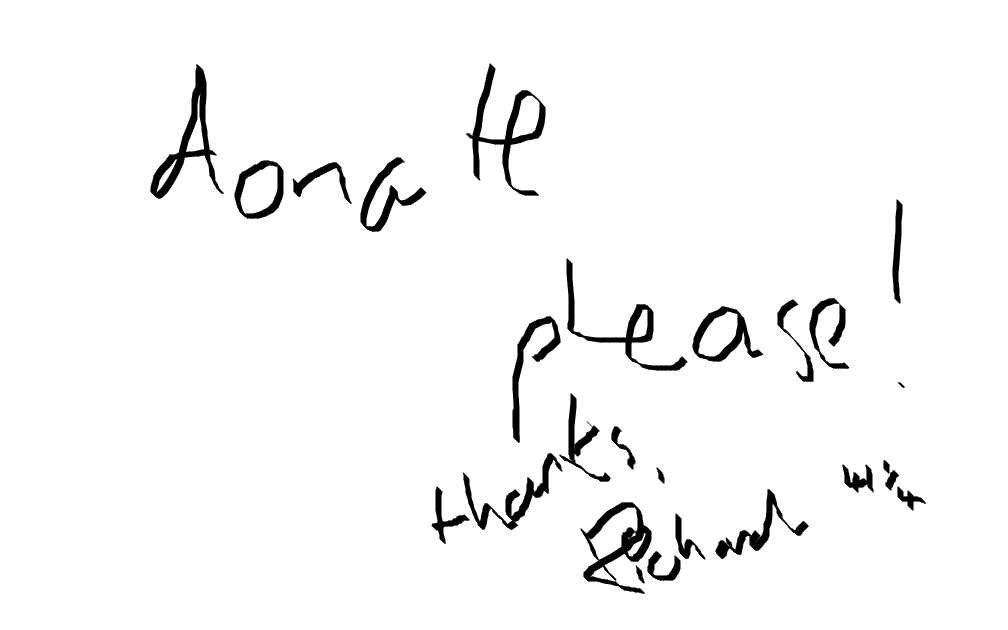 donate
please!
thanks.
Richard